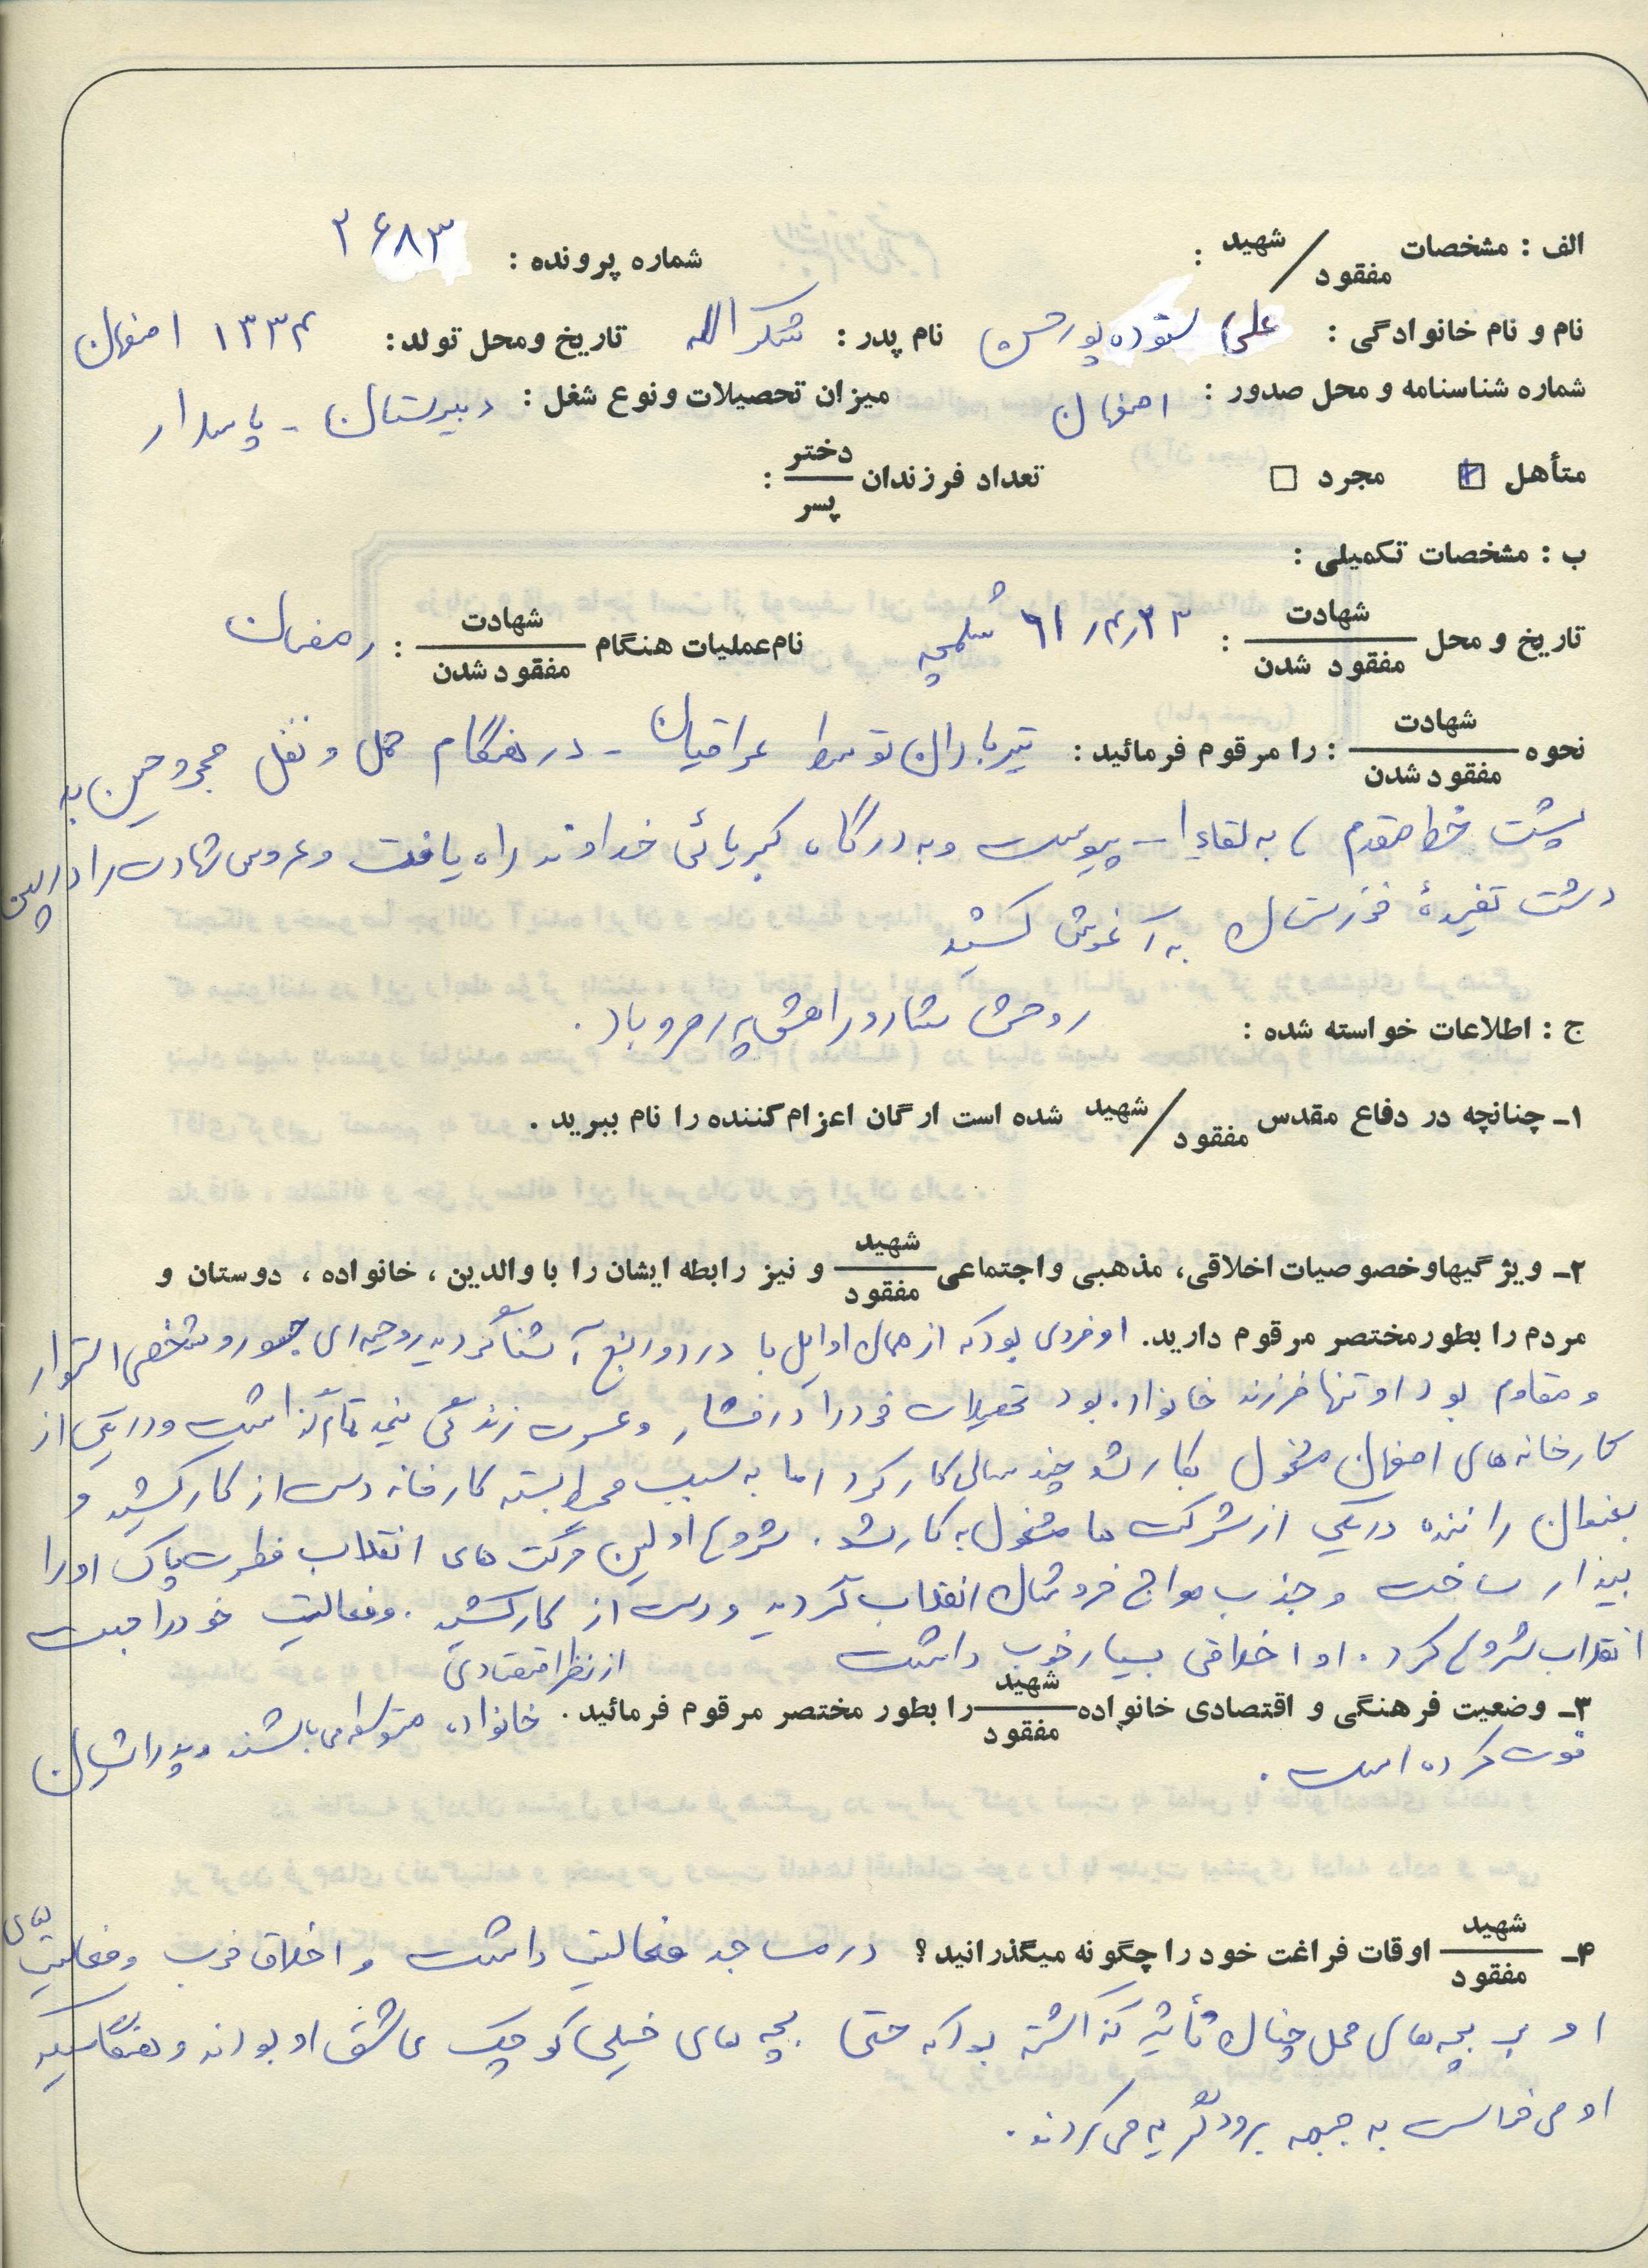 الف : مشخصات شهید / مفقود : شماره پرونده : ۲۶۸۳
نام و نام خانوادگی : علی ستوده پور حسن نام پدر : شکرالله تاریخ ومحل تولد: ۱۳۳۴ اصفهان
شماره شناسنامه و محل صدور : اصفهان میزان تحصیلات ونوع شغل : دبیرستان - پاسدار
متأهل ☑ مجرد ☐ تعداد فرزندان دختر / پسر :
ب : مشخصات تکمیلی :
تاریخ و محل شهادت / مفقود شدن : ۶۱/۴/۲۳ شلمچه نام عملیات هنگام شهادت / مفقود شدن : رمضان
نحوه شهادت / مفقود شدن : را مرقوم فرمائید : تیرباران توسط عراقیان - در هنگام حمل و نقل مجروحین به
پشت خط مقدم ، به لقاء ا... پیوست و به درگاه کبریائی خداوند راه یافت و عروس شهادت را در این
دشت تفیدهٔ خوزستان به آغوش کشید
ج : اطلاعات خواسته شده : روحش شاد و راهش پر رهرو باد .
۱ـ چنانچه در دفاع مقدس شهید / مفقود شده است ارگان اعزام کننده را نام ببرید .
۲ـ ویژگیها وخصوصیات اخلاقی، مذهبی واجتماعی شهید / مفقود و نیز رابطه ایشان را با والدین ، خانواده ، دوستان و
مردم را بطور مختصر مرقوم دارید. او فردی بود که از همان اوایل با درد و رنج آشنا گردید روحیه ای جسور و شخصی استوار
و مقاوم بود او تنها فرزند خانواده بود تحصیلات خود را در فشار و عسرت زندگی نیمه تمام گذاشت و در یکی از
کارخانه های اصفهان مشغول بکار شد چند سالی کار کرد اما به سبب محیط بسته کارخانه دست از کار کشید و
بعنوان راننده در یکی از شرکت ها مشغول به کار شد . شروع اولین حرکت های انقلاب فطرت پاک او را
بیدار ساخت و جذب امواج خروشان انقلاب گردید و دست از کار کشید . و فعالیت خود را جهت
انقلاب شروع کرد . او اخلاقی بسیار خوب داشت
۳ـ وضعیت فرهنگی و اقتصادی خانواده شهید / مفقود را بطور مختصر مرقوم فرمائید . از نظر اقتصادی خانواده متوسط می باشند و پدر ایشان
فوت کرده است .
۴ـ شهید / مفقود اوقات فراغت خود را چگونه میگذرانید؟ در مساجد فعالیت داشت و اخلاق خوب و فعالیت های
او بر بچه های محل چنان تأثیر گذاشته بود که حتی بچه های خیلی کوچک عاشق او بودند و هنگامیکه
او می خواست به جبهه برود گریه می کردند .